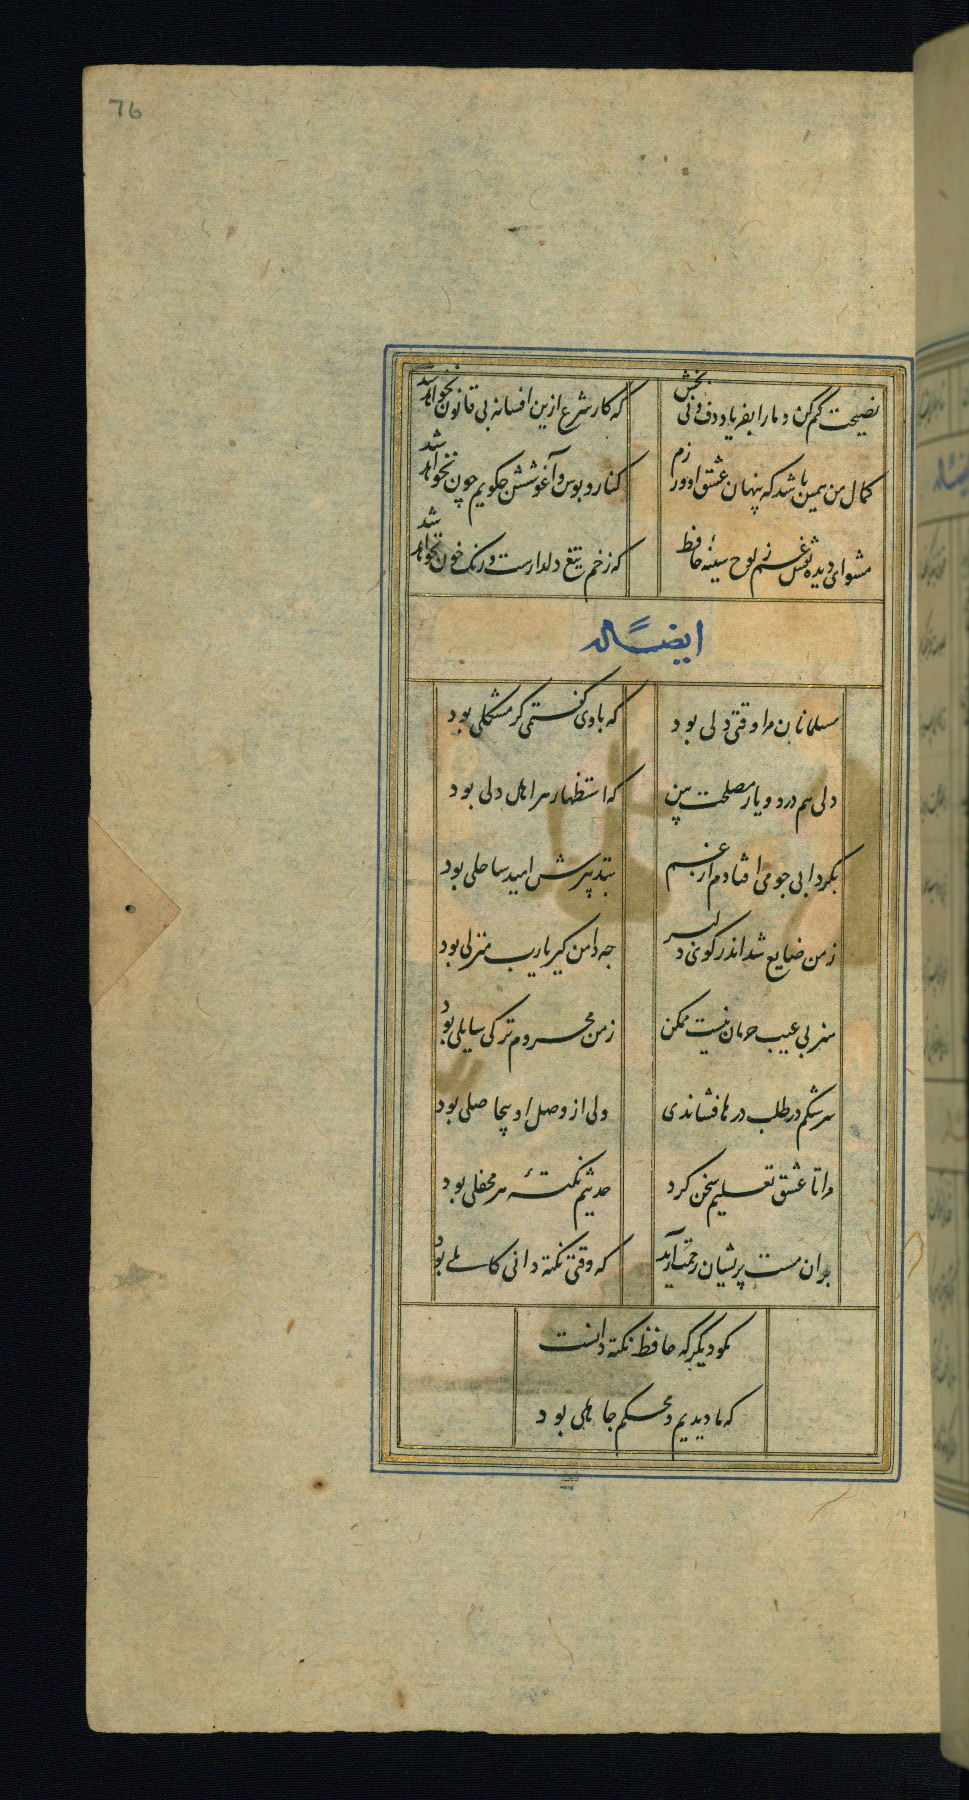 76
نصیحت کم کن و مارا بفریاد دف و نی بخش
که کار شرع ازین افسانه بی قانون نخواهد شد
کمال من همین باشد که پنهان عشق او ورزم
کنار و بوس و آغوشش چکویم چون نخواهد شد
مشوای دیده نقش غم ز لوح سینهٔ حافظ
که زخم تیغ دلدارست و رنک خون نخواهد شد
ایضاً له
مسلمانان مرا وقتی دلی بود
که باوی کفتمی کر مشکلی بود
دلی هم درد و یار مصلحت بین
که استظهار هر اهل دلی بود
بکردابی جو می افتادم از غم
بتدبیرش امید ساحلی بود
زمن ضایع شد اندر کوی دلبر
جه دامن کیر یارب منزلی بود
هنر بی عیب حرمان نیست ممکن
زمن محروم تر کی سایلی بود
سرشکم در طلب درها فشاندی
ولی از وصل او بیحاصلی بود
مرا تا عشق تعلیم سخن کرد
حدیثم نکتهٔ هر محفلی بود
بران مست پریشان رحمت آرید
که وقتی نکته دانی کاملی بود
مکو دیکر که حافظ نکته دانست
که ما دیدیم و محکم جاهلی بود